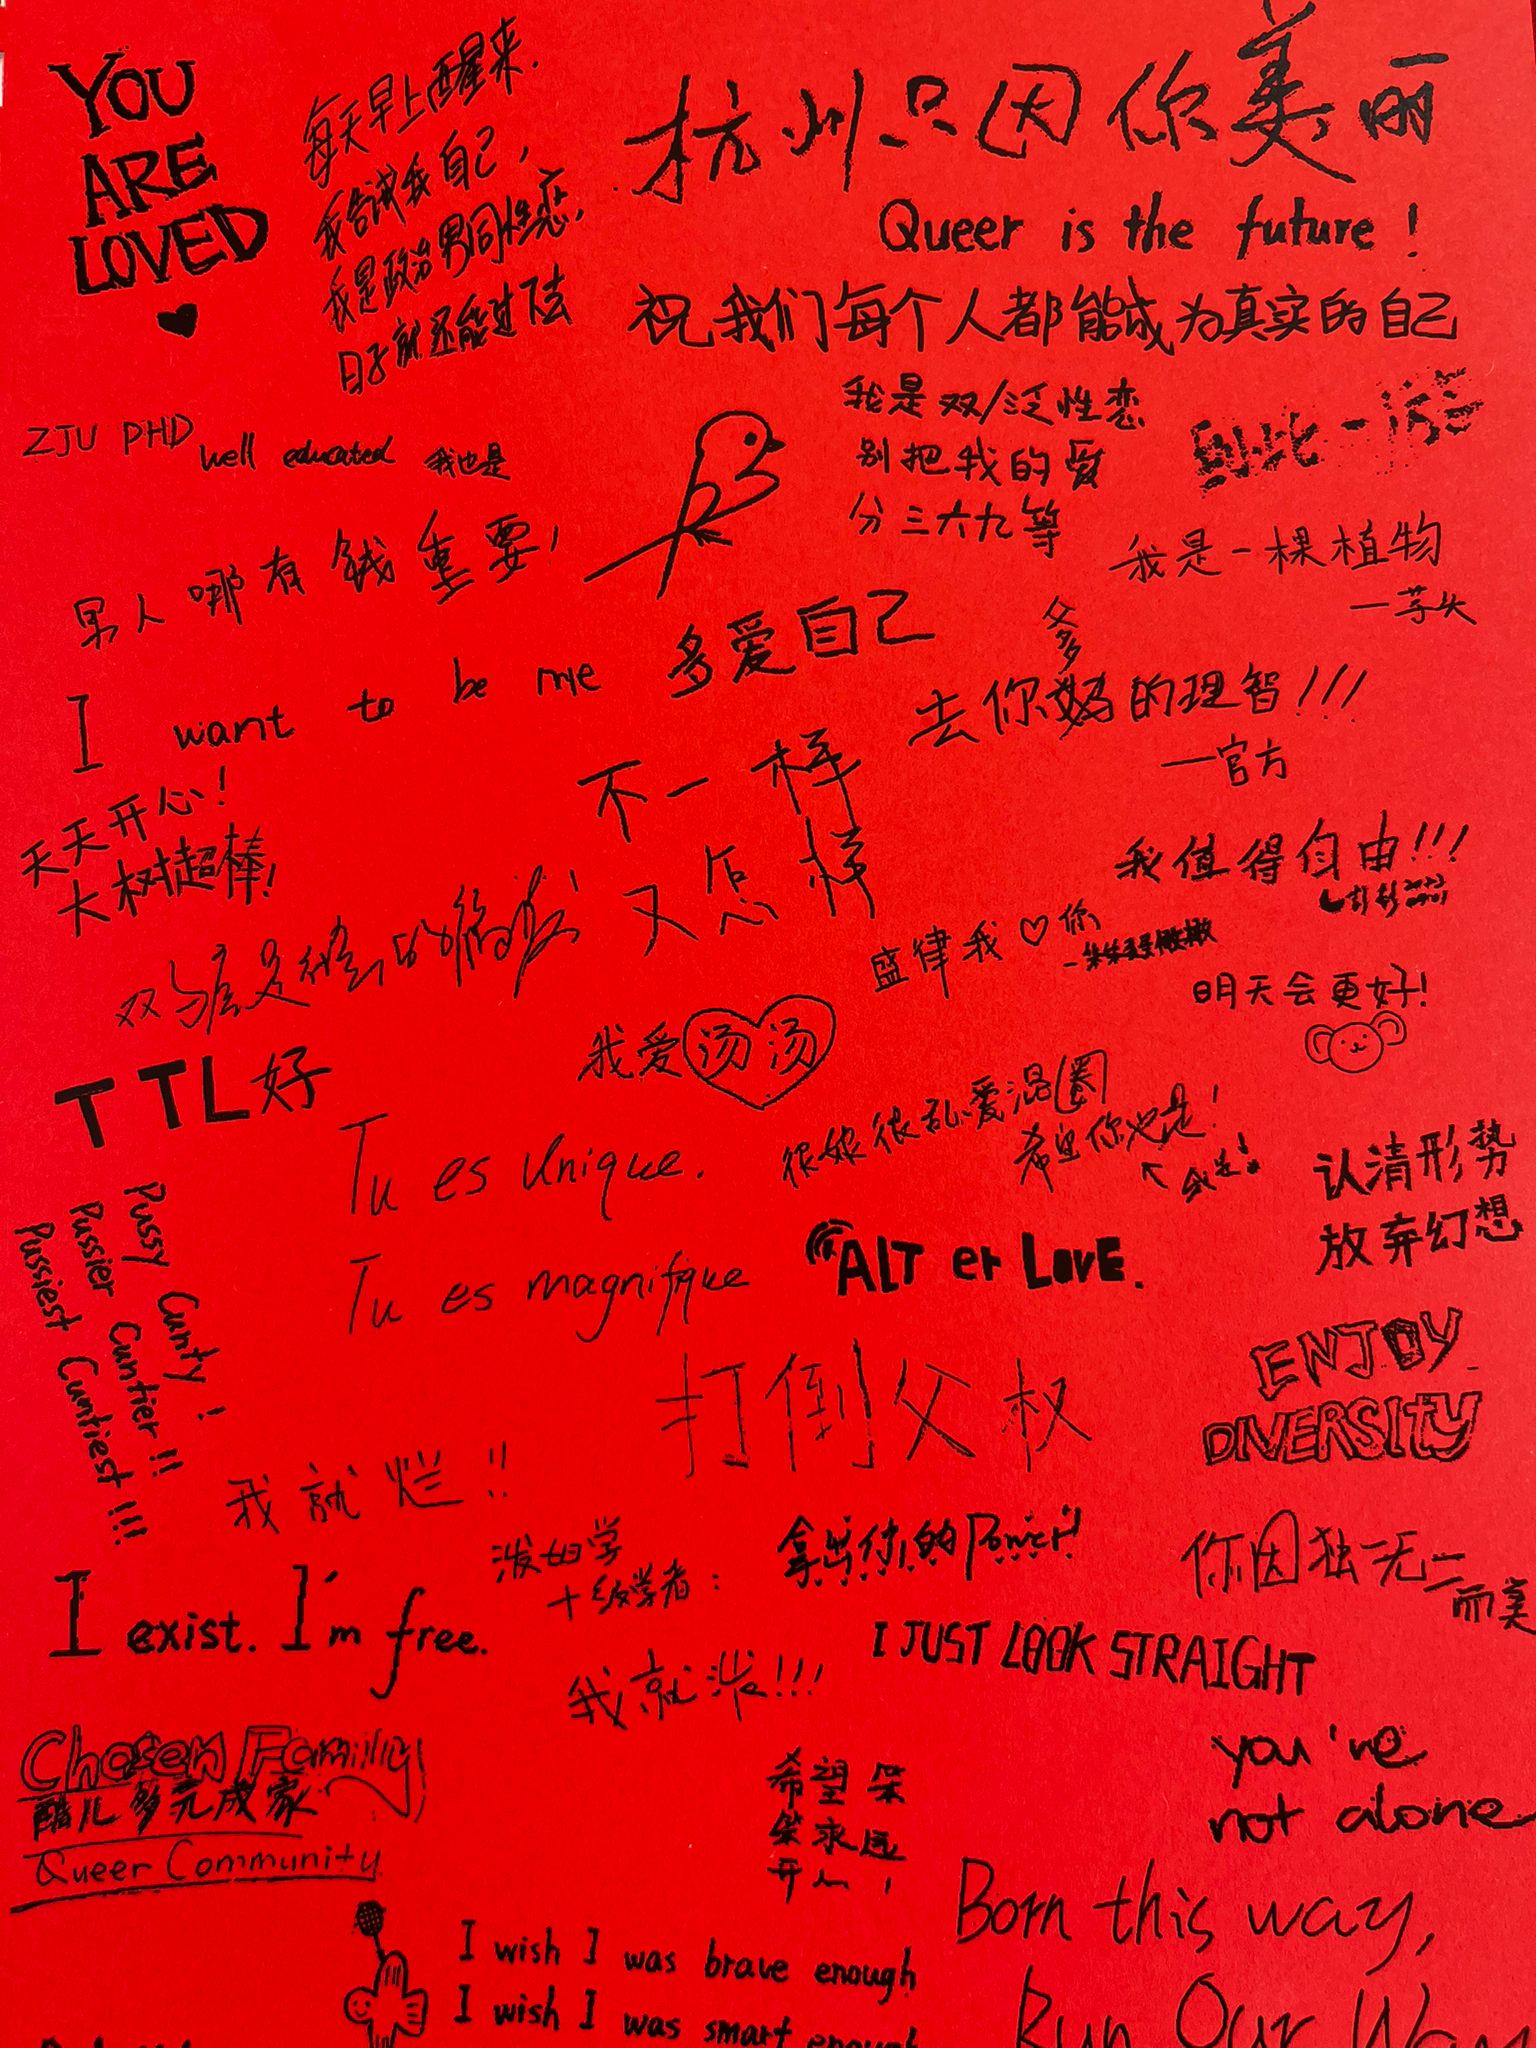 YOU
ARE
LOVED
每天早上醒来.
我告诉我自己,
我是政治男同性恋,
日子就还能过下去
杭州只因你美丽
Queer is the future!
祝我们每个人都能成为真实的自己
ZJU PHD
well educated 我也是
我是双/泛性恋
别把我的爱
分三六九等
到此一游
我是一棵植物
—芋头
男人哪有钱重要!
I want to be me
多爱自己
爹
去你妈的理智!!!
—官方
天天开心!
大树超棒!
不一样
又怎样
我值得自由!!!
盛律我♡你
明天会更好!
TTL好
我爱汤汤
很娘很乱爱混圈
希望你也是!
Tu es unique.
Tu es magnifique
认清形势
放弃幻想
Pussy Cunty!
Pussier Cuntier!!
Pussiest Cuntiest!!!
ALT er LovE.
打倒父权
ENJOY
DIVERSITY
我就烂!!
泼妇学
十级学者:
我就泼!!!
拿出你的Power!
你因独一无二
而美
I exist. I'm free.
I JUST LOOK STRAIGHT
Chosen Family
酷儿多元成家
Queer Community
希望笨
笨永远
开心!
you're
not alone
I wish I was brave enough
I wish I was smart enough
Born this way,
Run Our Way